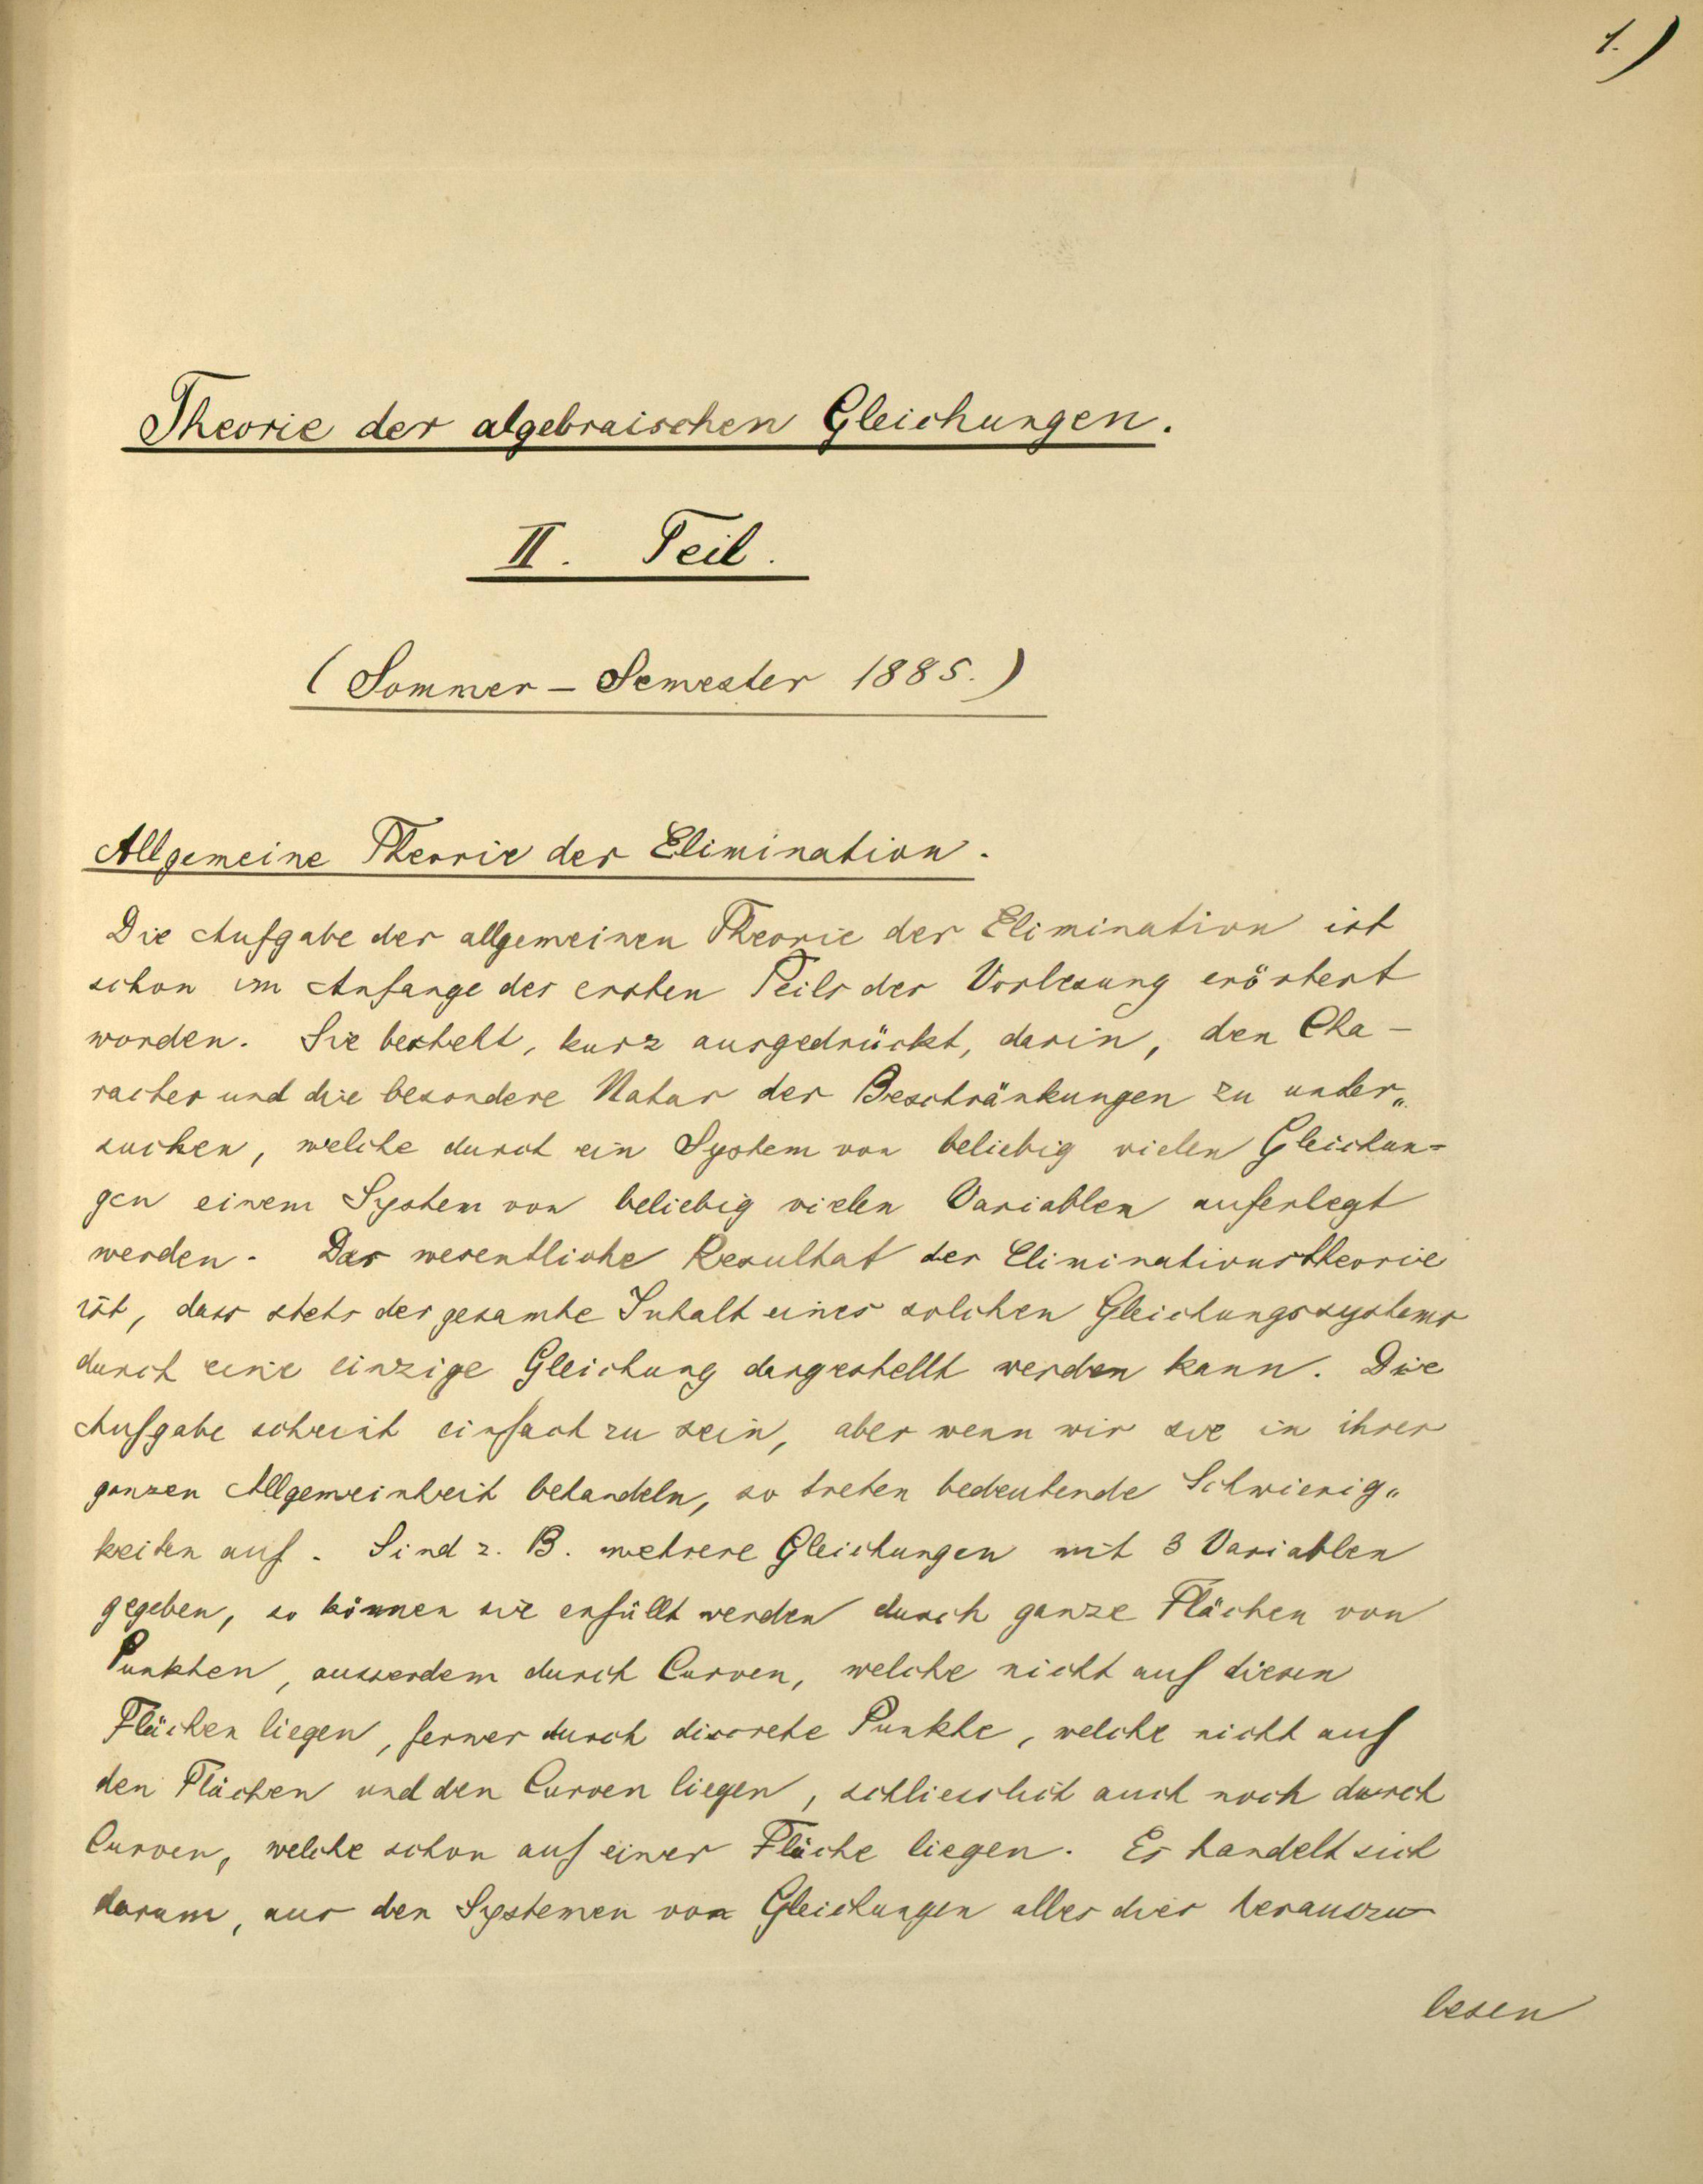 1.)
Theorie der algebraischen Gleichungen.
II. Teil.
(Sommer-Semester 1885.)
Allgemeine Theorie der Elimination.
Die Aufgabe der allgemeinen Theorie der Elimination ist
schon im Anfange des ersten Teils der Vorlesung erörtert
worden. Sie besteht, kurz ausgedrückt, darin, den Cha-
racter und die besondere Natur der Beschränkungen zu unter„
suchen, welche durch ein System von beliebig vielen Gleichun=
gen einem System von beliebig vielen Variablen auferlegt
werden. Das wesentliche Resultat der Eliminationstheorie
ist, dass stets der gesamte Inhalt eines solchen Gleichungssystems
durch eine einzige Gleichung dargestellt werden kann. Die
Aufgabe scheint einfach zu sein, aber wenn wir sie in ihrer
ganzen Allgemeinheit behandeln, so treten bedeutende Schwierig„
keiten auf. Sind z. B. mehrere Gleichungen mit 3 Variablen
gegeben, so können sie erfüllt werden durch ganze Flächen von
Punkten, ausserdem durch Curven, welche nicht auf diesen
Flächen liegen, ferner durch discrete Punkte, welche nicht auf
den Flächen und den Curven liegen, schliesslich auch noch durch
Curven, welche schon auf einer Fläche liegen. Es handelt sich
darum, aus den Systemen von Gleichungen alles dies herauszu-
lesen